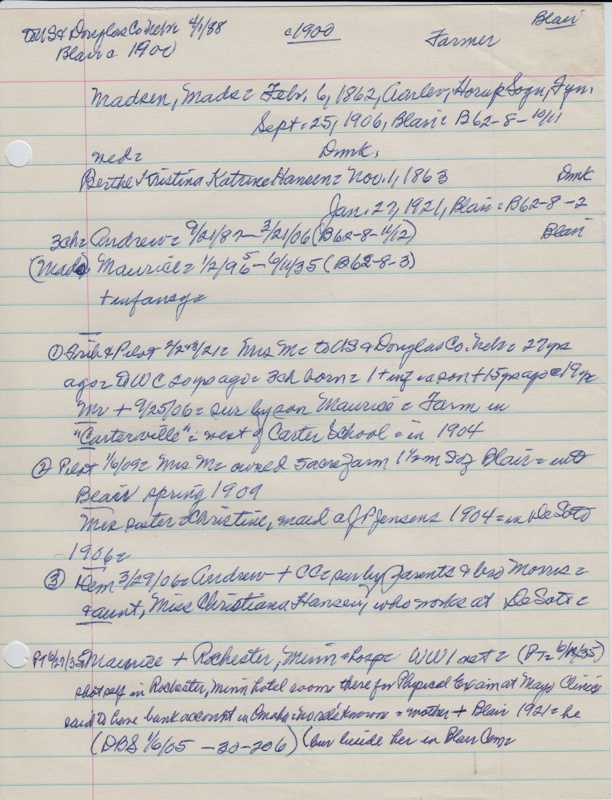 to US & Douglas Co. Nebr 4/1/88 c1900 Blair
Blair c 1900 Farmer
Madsen, Mads = Febr. 6, 1862, Aarlev, Horup Sogn, Fyn.
Sept. 25, 1906, Blair = B62-8-10/11
med = Dnmk.
Berthe Kristina Katrine Hansen = Nov. 1, 1863 Dnmk
Jan. 27, 1921, Blair = B62-8-2
3ch = Andrew = 9/21/87 - 3/21/06 (B62-8-10/12) Blair
(Mads) Maurice = 1/2/96 5 - 6/11/35 (B62-8-3)
+ infancy =
① Trib & Pilot = Mrs M = to US & Douglas Co. Nebr = 27 yrs
ago = to WC 20 yrs ago = 3ch born = 1 + inf = a son + 15 yrs ago @ 19 yrs
Mr + 9/25/06 = sur by son Maurice = Farm in
"Carterville" = west of Carter School = in 1904
② Pilot 1/6/09 = Mrs M = owned 5 acre farm 1 1/2 m S of Blair = into
Blair spring 1909
Mrs sister = Christine, maid a J P Jensens 1904 = in DeSoto
1906 =
③ Dem 3/29/06 = Andrew + CC = sur by parents & bro Morris =
& aunt, Miss Christiana Hansen, who works at DeSoto =
PT 6/27/35 Maurice + Rochester, Minn = hosp = WW1 vet = (PT = 6/ /35)
shot self in Rochester, Minn hotel room = there for Physical Exam at Mayo Clinic
said to have bank account in Omaha = no rels known = mother + Blair 1921 = he
(DBS 1/6/05 - 30-206) (bur beside her in Blair Cem =